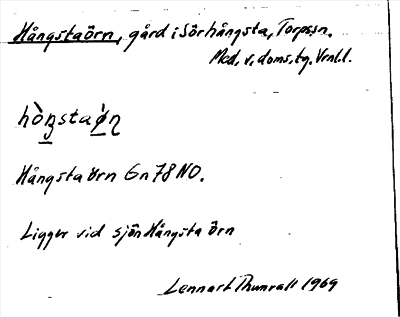 Hångstaörn, gård i Sörhångsta, Torpssn.
Med. v. doms. tg. Vrnl.l.
hòŋstaø̀n
Hångsta örn Gn 78 NO.
Ligger vid sjön Hångsta örn
Lennart Thunvall 1969